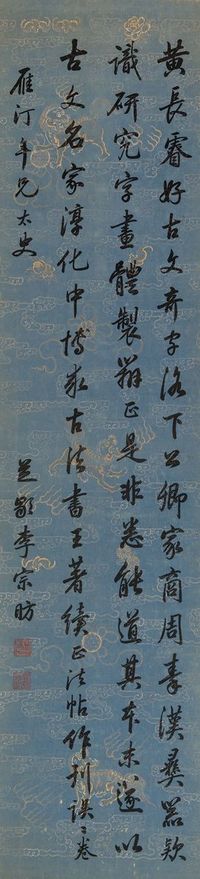 黃長睿好古文奇字洛下公卿家商周秦漢彝器欵
識研究字畫體製辯正是非悉能道其本末遂以
古文名家淳化中博求古法書王著續正法帖作刊誤二卷
雁汀年兄太史
芝齡李宗昉